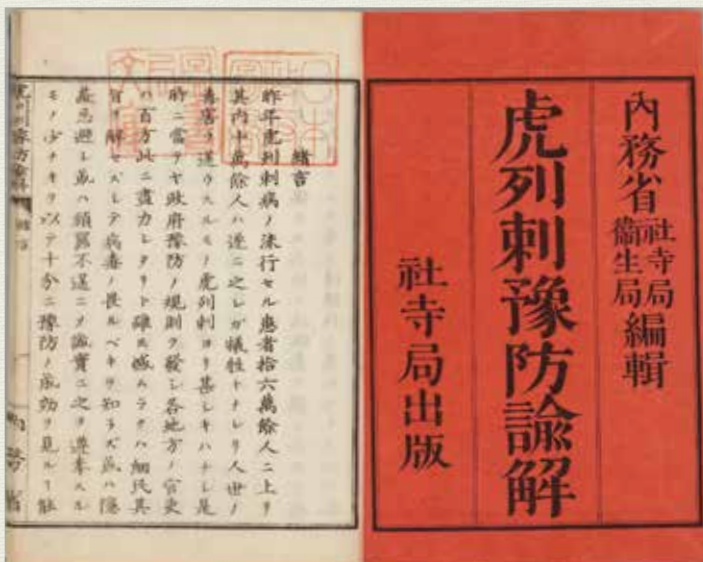 内務省 社寺局 衞生局 編輯
虎列剌豫防諭解
社寺局出版
緒言
昨年虎列剌病ノ流行セル患者拾六萬餘人ニ上リ
其內十萬餘人ハ遂ニ之レガ犠牲トナレリ人世ノ
毒害ヲ逞ウスルモノ虎列剌ヨリ甚シキハナシ是
時ニ當テヤ政府豫防ノ規則ヲ發シ各地方ノ官吏
ハ百方此ニ盡力シタリト雖𪜈憾ムラクハ細民其
旨ヲ解セズシテ病毒ノ畏ルベキヲ知ラズ或ハ隱
蔽忌避シ或ハ頑嚚不遜ニシテ誠實ニ之ヲ遵奉スル
モノ少ナキヲ以テ十分ニ豫防ノ成効ヲ見ルヿ能
內務省